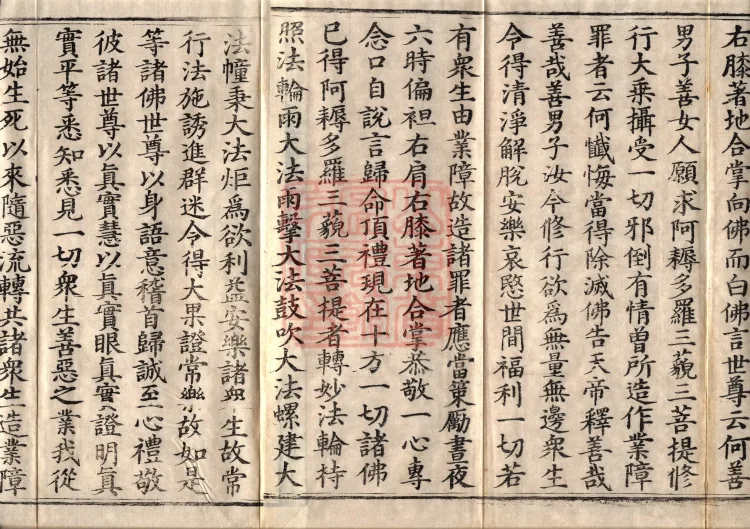 右膝著地合掌向佛而白佛言世尊云何善
男子善女人願求阿耨多羅三藐三菩提修
行大乘攝受一切邪倒有情曾所造作業障
罪者云何懺悔當得除滅佛告天帝釋善哉
善哉善男子汝今修行欲為無量無邊衆生
令得清淨解脫安樂哀愍世間福利一切若
有衆生由業障故造諸罪者應當策勵晝夜
六時偏袒右肩右膝著地合掌恭敬一心專
念口自說言歸命頂禮現在十方一切諸佛
已得阿耨多羅三藐三菩提者轉妙法輪持
照法輪雨大法雨擊大法鼓吹大法螺建大
法幢秉大法炬為欲利益安樂諸衆生故常
行法施誘進群迷令得大果證常樂故如是
等諸佛世尊以身語意稽首歸誠至心禮敬
彼諸世尊以真實慧以真實眼真實證明真
實平等悉知悉見一切衆生善惡之業我從
無始生死以來隨惡流轉共諸衆生造業障